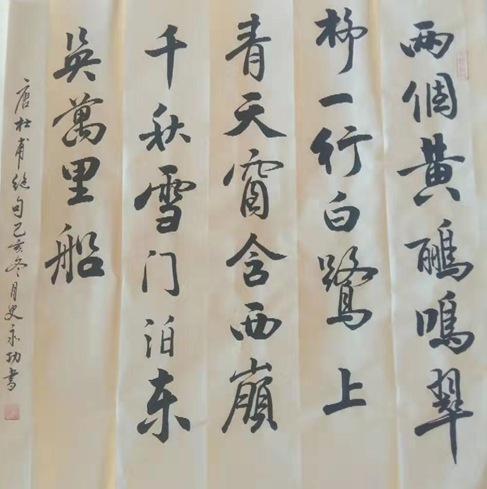 兩個黄鸝鳴翠
柳一行白鷺上
青天窗含西嶺
千秋雪门泊东
吳萬里船
唐杜甫絕句己亥冬月史永功書